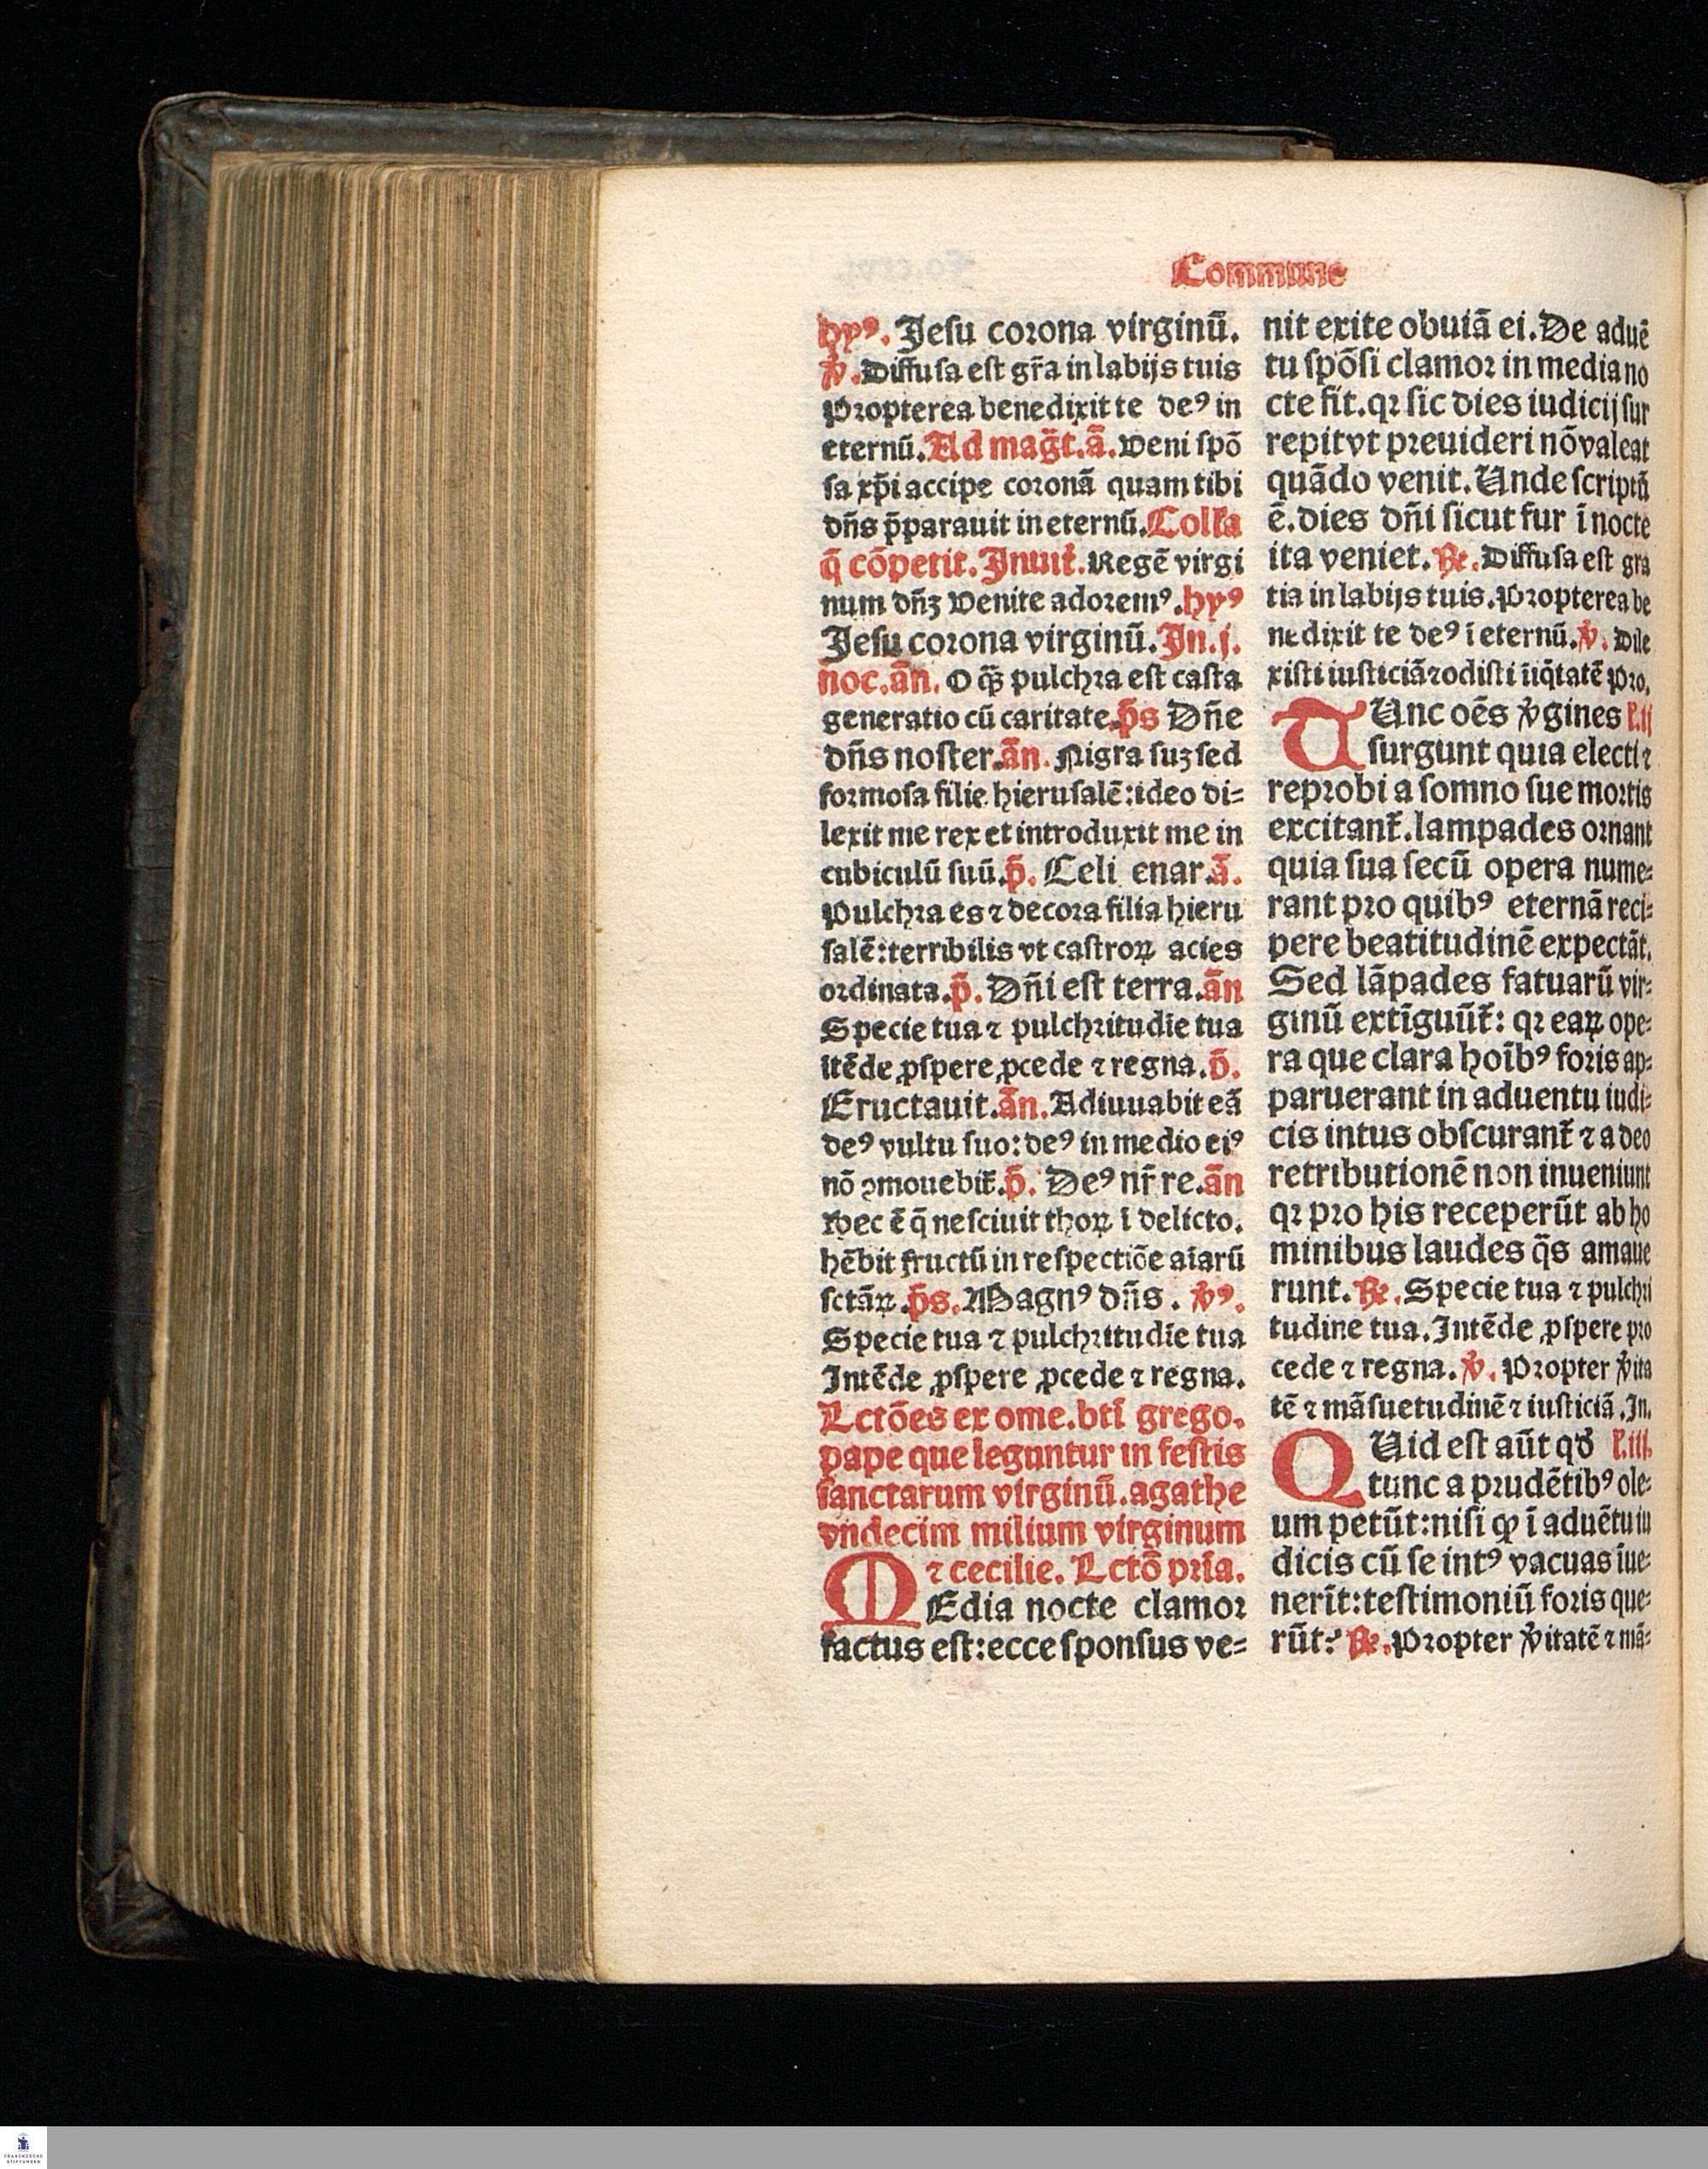 Commune
hyꝰ. Jeſu coꝛona virginū.
ꝟ. Diffuſa eſt gr̄a in labijs tuis
Pꝛopterea benedixit te deꝰ in
eternū. Ad mag̅t. ā. Veni ſpō
ſa xp̄i accipe coꝛonā quam tibi
dn̄s p̄parauit in eternū. Coll̄a
q̄ cōpetit. Inuit̄. Regē virgi
num dn̄ꝫ Venite adoꝛemꝰ. hyꝰ
Jeſu coꝛona virginū. In. j.
noc. ān. O qꝫ̄ pulchꝛa eſt caſta
generatio cū caritate. p̄s Dn̄e
dn̄s noſter. ān. Nigra ſuꝫ ſed
foꝛmoſa filie hieruſalē: ideo di⸗
lexit me rex et introduxit me in
cubiculū ſuū. p̄. Celi enar. ā.
Pulchꝛa es ⁊ decoꝛa filia hieru
ſalē: terribilis vt caſtroꝝ acies
oꝛdinata. p̄. Dn̄i eſt terra. ān
Specie tua ⁊ pulchꝛitudīe tua
ītēde ꝓſpere ꝓcede ⁊ regna. p̄.
Eructauit. ān. Adiuuabit eā
deꝰ vultu ſuo: deꝰ in medio eiꝰ
nō ꝯmouebit̄. p̄. Deꝰ nr̄ re. ān
Hec ē q̄ neſciuit thoꝝ ī delicto.
hēbit fructū in reſpectiōe aīarū
ſctāꝝ. p̄s. Magnꝰ dn̄s. ꝟꝰ.
Specie tua ⁊ pulchꝛitudīe tua
Intēde ꝓſpere ꝓcede ⁊ regna.
Lctōes ex ome. btī grego.
pape que leguntur in feſtis
ſanctarum virginū. agathe
vndecim milium virginum
⁊ cecilie. Lctō pꝛīa.
MEdia nocte clamoꝛ
factus eſt: ecce ſponſus ve⸗
nit exite obuiā ei. De aduē
tu ſpōſi clamoꝛ in media no
cte fit. qꝛ ſic dies iudicij ſur
repit vt pꝛeuideri nō valeat
quādo venit. Unde ſcriptū
ē. dies dn̄i ſicut fur ī nocte
ita veniet. ℞. Diffuſa eſt gra
tia in labijs tuis. Pꝛopterea be
nedixit te deꝰ ī eternū. ꝟ. Dile
xiſti iuſticiā ⁊ odiſti īiq̄tatē Pꝛo.
TUnc oēs ꝟgines l.ij
ſurgunt quia electi ⁊
repꝛobi a ſomno ſue moꝛtis
excitant̄. lampades oꝛnant
quia ſua ſecū opera nume⸗
rant pꝛo quibꝰ eternā reci⸗
pere beatitudinē expectāt.
Sed lāpades fatuarū vir⸗
ginū extīguūt̄: qꝛ eaꝝ ope⸗
ra que clara hoībꝰ foꝛis ap⸗
paruerant in aduentu iudi⸗
cis intus obſcurant̄ ⁊ a deo
retributionē non inueniunt
qꝛ pꝛo his receperūt ab ho
minibus laudes q̄s amaue
runt. ℞. Specie tua ⁊ pulchꝛi
tudine tua. Intēde ꝓſpere pꝛo
cede ⁊ regna. ꝟ. Pꝛopter ꝟita
tē ⁊ māſuetudinē ⁊ iuſticiā. In.
QUid eſt aūt qḋ l.iij.
tunc a pꝛudētibꝰ ole⸗
um petūt: niſi ꝙ ī aduētu iu
dicis cū ſe intꝰ vacuas īue⸗
nerīt: teſtimoniū foꝛis que⸗
rūt? ℞. Pꝛopter ꝟitatē ⁊ mā⸗
FRANCKESCHE
STIFTUNGEN